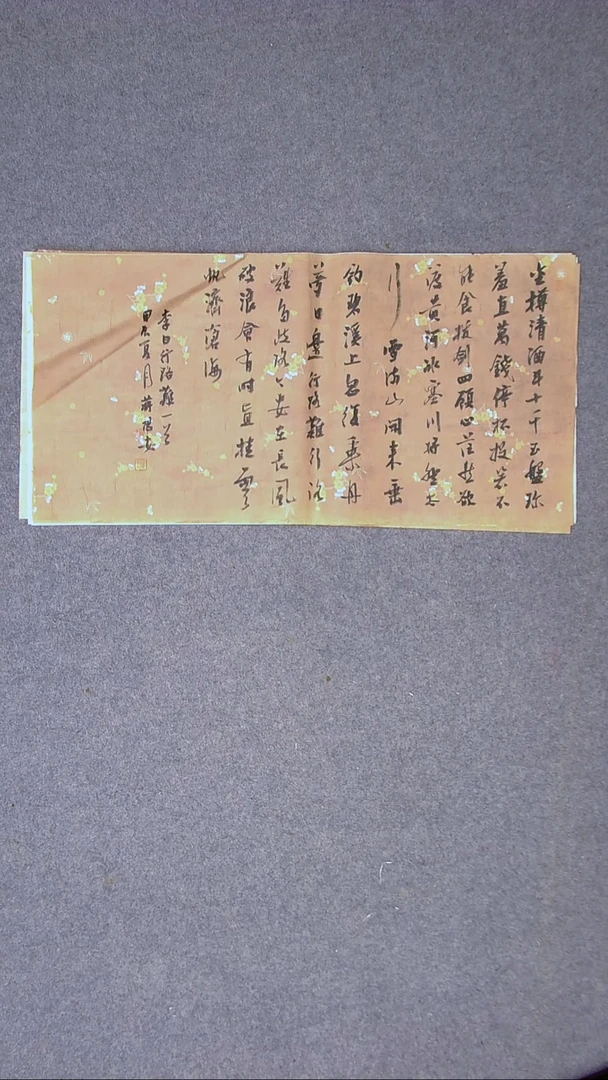 金樽清酒斗十千玉盤珍
羞直萬錢停杯投箸不
能食拔劍四顧心茫然欲
渡黄河冰塞川将登太
行雪满山閒来垂
釣碧溪上忽復乘舟
夢日邊行路難行路
難多歧路今安在長風
破浪會有时直挂雲
帆濟滄海
李白行路難一首
甲辰夏月